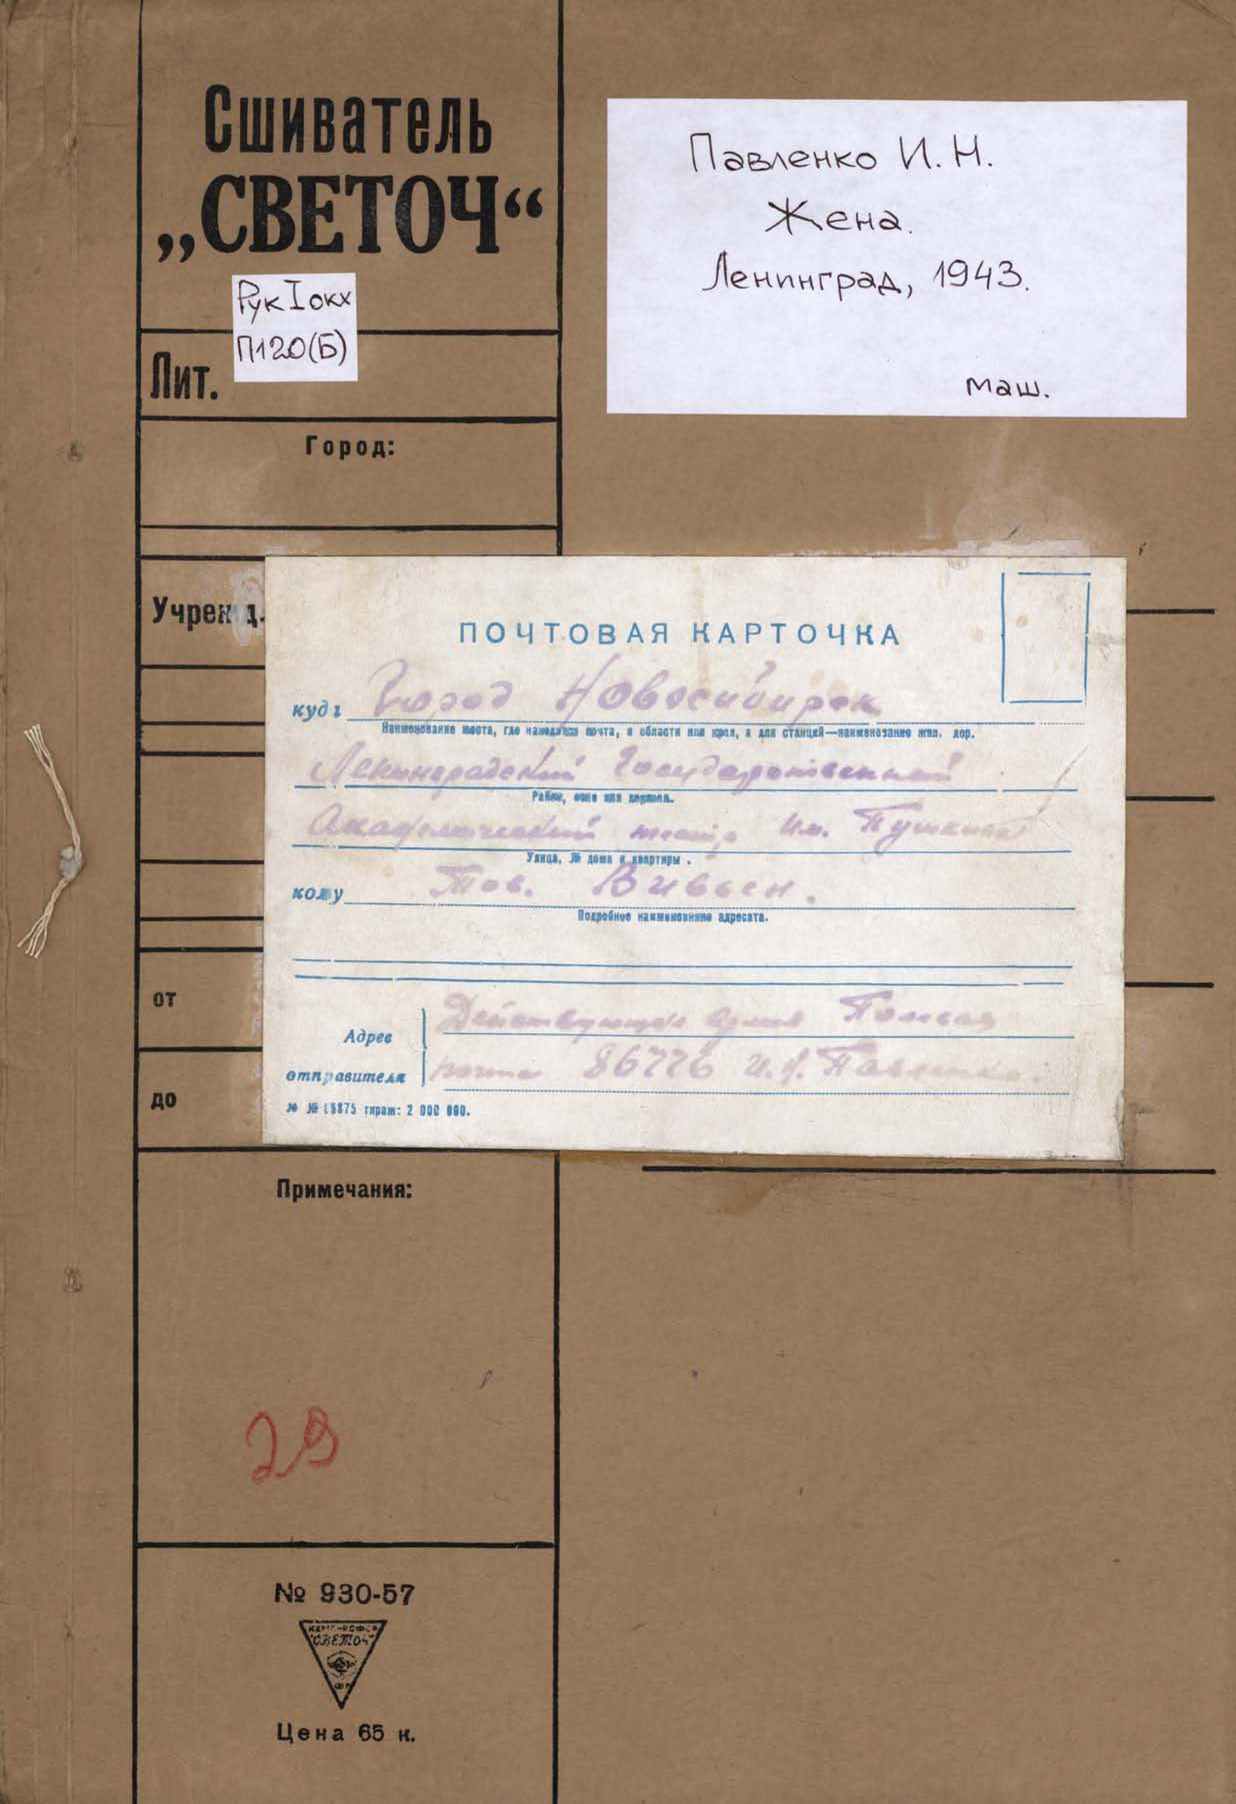 Сшиватель
„СВЕТОЧ“
Рук I окх
П120(Б)
Лит.
Город:
Учрежд.
от
до
Примечания:
29
№ 930-57
"СВЕТОЧ"
Цена 65 к.
Павленко И. Н.
Жена.
Ленинград, 1943.
маш.
ПОЧТОВАЯ КАРТОЧКА
куда Город Новосибирск
Наименование места, где находится почта, и области или края, а для станций—наименование жел. дор.
Ленинградский Государственный
Район, село или деревня.
Академический театр им. Пушкина
Улица, № дома и квартиры.
кому Тов. Вивьен.
Подробное наименование адресата.
Адрес отправителя
Действующая армия Полевая
почта 86776 И. Н. Павленко.
тираж: 2 000 000.